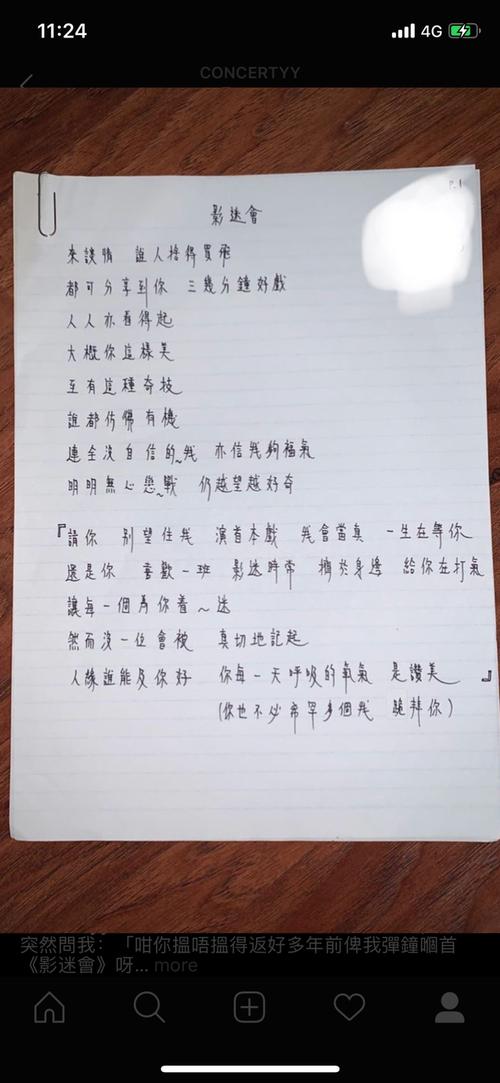 11:24
4G
CONCERTYY
P.1
影迷會
來談情 誰人捨得買飛
都可分享到你 三幾分鐘好戲
人人亦看得起
大概你這樣美
至有這種奇技
誰都彷彿有機
連全沒自信的~我 亦信我夠福氣
明明無心戀~戰 仍越望越好奇
『請你 別望住我 演首本戲 我會當真 一生在等你
還是你 喜歡一班 影迷時常 擠於身邊 給你在打氣
讓每一個為你着~迷
然而沒一位會被 真切地記起
人緣誰能及你好 你每一天呼吸的氧氣 是讚美 』
(你也不必希罕多個我 跪拜你)
突然問我：「咁你搵唔搵得返好多年前俾我彈鐘嗰首
《影迷會》呀... more